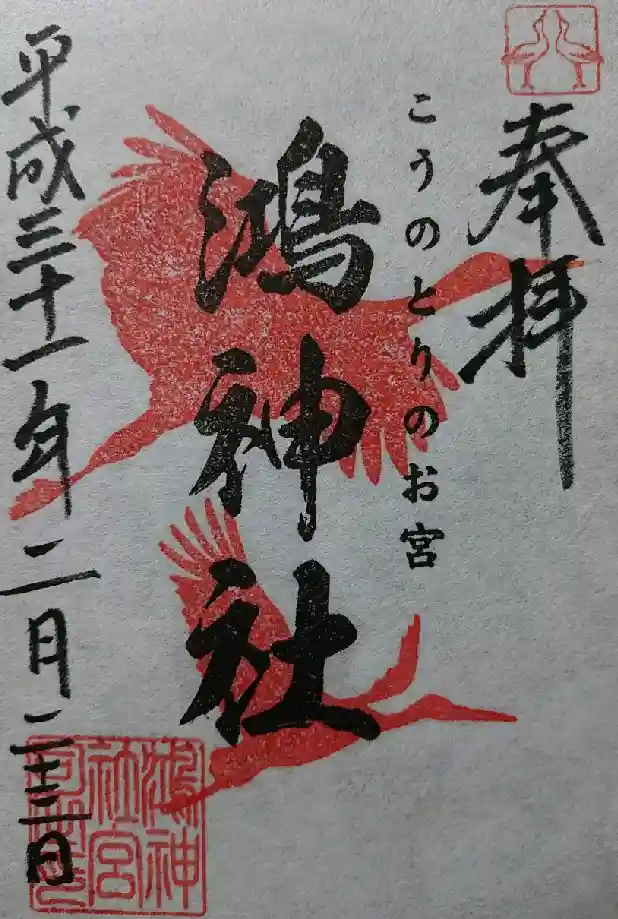 奉拝
こうのとりのお宮
鴻神社
平成三十一年二月二十三日
鴻神
社宮
司之印